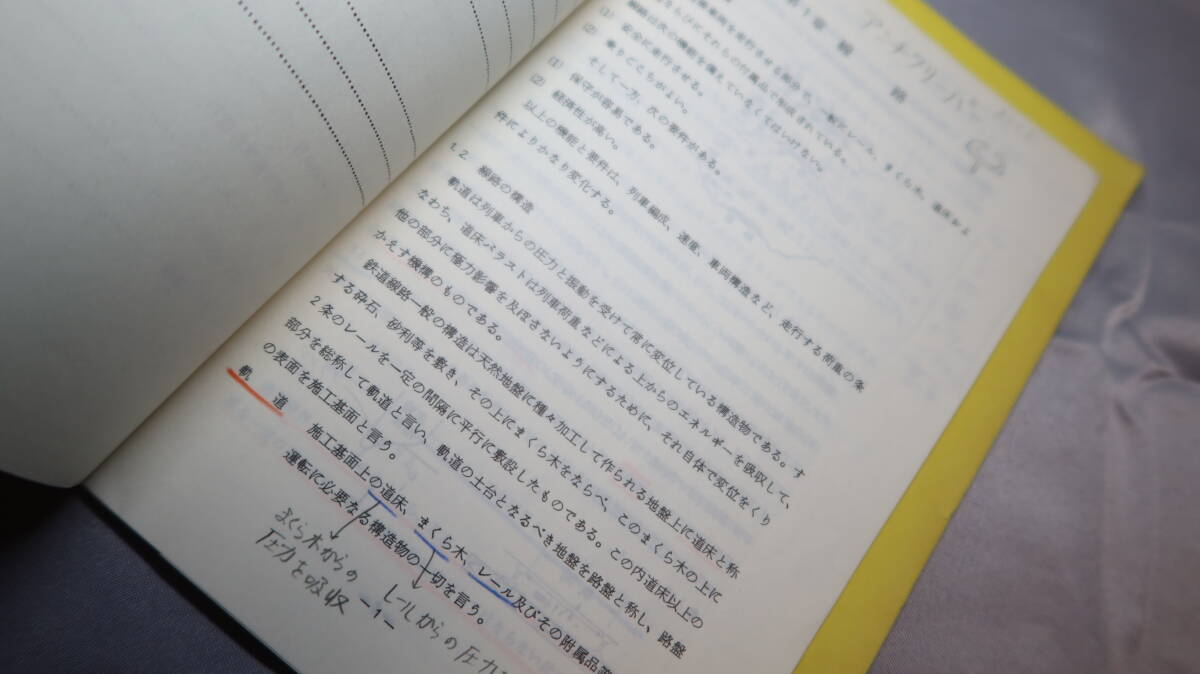 アンチクリーパー
第1章 線 路
を走行させる部分で、一般にレール、まくら木、道床およ
びそれらの付属品で構成されている。
線路は次の機能を備えていなくてはいけない。
(1) 安全に走行させる。
(2) 乗りごこちがよい。
そして一方、次の要件がある。
(1) 保守が容易である。
(2) 経済性が高い。
以上の機能と要件は、列車編成、速度、車両構造など、走行する荷重の条
件によりかなり変化する。
1.2 線路の構造
軌道は列車からの圧力と振動を受けて常に変位している構造物である。す
なわち、道床バラストは列車荷重などによる上からのエネルギーを吸収して、
他の部分に極力影響を及ぼさないようにするために、それ自体で変位をくり
かえす機構のものである。
鉄道線路一般の構造は天然地盤に種々加工して作られる地盤上に道床と称
する砕石、砂利等を敷き、その上にまくら木をならべ、このまくら木の上に
2条のレールを一定の間隔に平行に敷設したものである。この内道床以上の
部分を総称して軌道と言い、軌道の土台となるべき地盤を路盤と称し、路盤
の表面を施工基面と言う。
軌 道 施工基面上の道床、まくら木、レール及びその附属品等
運転に必要なる構造物の一切を言う。
まくら木からの
圧力を吸収
レールからの圧力
-1-